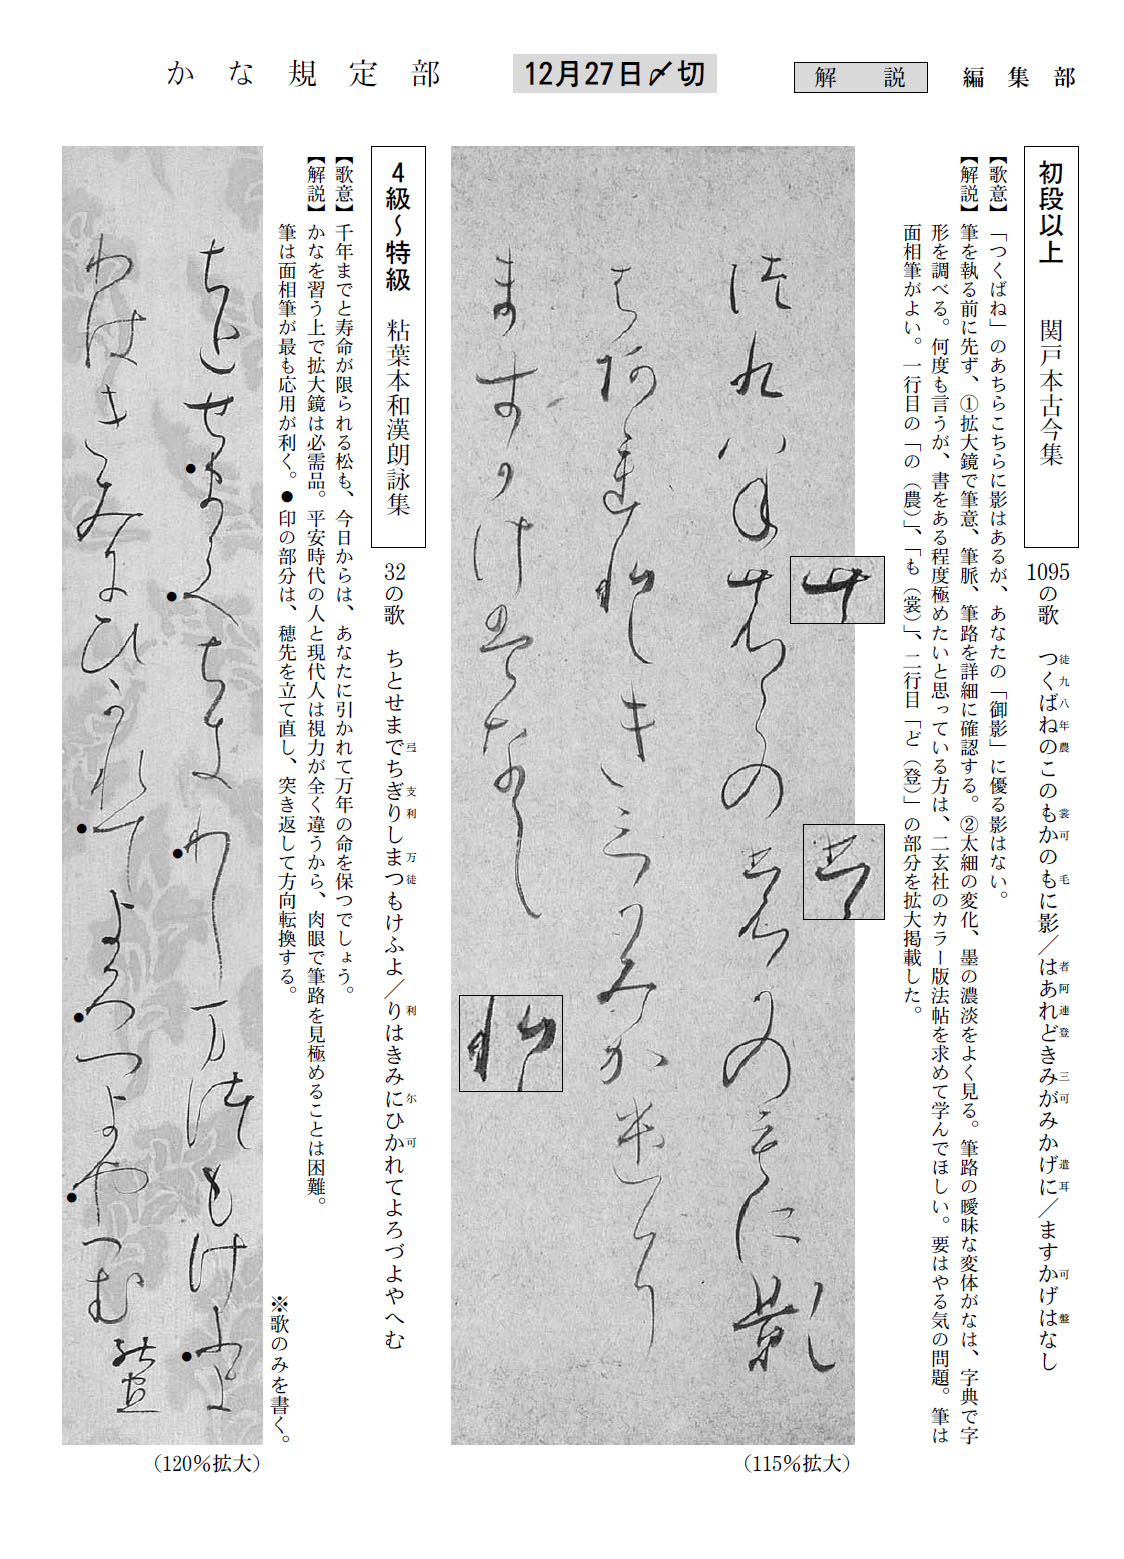 かな規定部
12月27日〆切
解説
編集部
初段以上　関戸本古今集
1095の歌　つくばねのこのもかのもに影／はあれどきみがみかげに／ますかげはなし
徒九八年農　裳可　毛　者阿連登　三可　遣耳　可　盤
【歌意】「つくばね」のあちらこちらに影はあるが、あなたの「御影」に優る影はない。
【解説】筆を執る前に先ず、①拡大鏡で筆意、筆脈、筆路を詳細に確認する。②太細の変化、墨の濃淡をよく見る。筆路の曖昧な変体がなは、字典で字
形を調べる。何度も言うが、書をある程度極めたいと思っている方は、二玄社のカラー版法帖を求めて学んでほしい。要はやる気の問題。筆は
面相筆がよい。一行目の「の（農）」、「も（裳）」、二行目「ど（登）」の部分を拡大掲載した。
徒九八年農この裳可のもに影
者阿連登きみ可みか遣耳
ますかけ盤なし
（115％拡大）
4級〜特級　粘葉本和漢朗詠集
32の歌　ちとせまでちぎりしまつもけふよ／りはきみにひかれてよろづよやへむ
弖　支利　万徒　利　尓　可
【歌意】千年までと寿命が限られる松も、今日からは、あなたに引かれて万年の命を保つでしょう。
【解説】かなを習う上で拡大鏡は必需品。平安時代の人と現代人は視力が全く違うから、肉眼で筆路を見極めることは困難。
筆は面相筆が最も応用が利く。●印の部分は、穂先を立て直し、突き返して方向転換する。
※歌のみを書く。
（120％拡大）